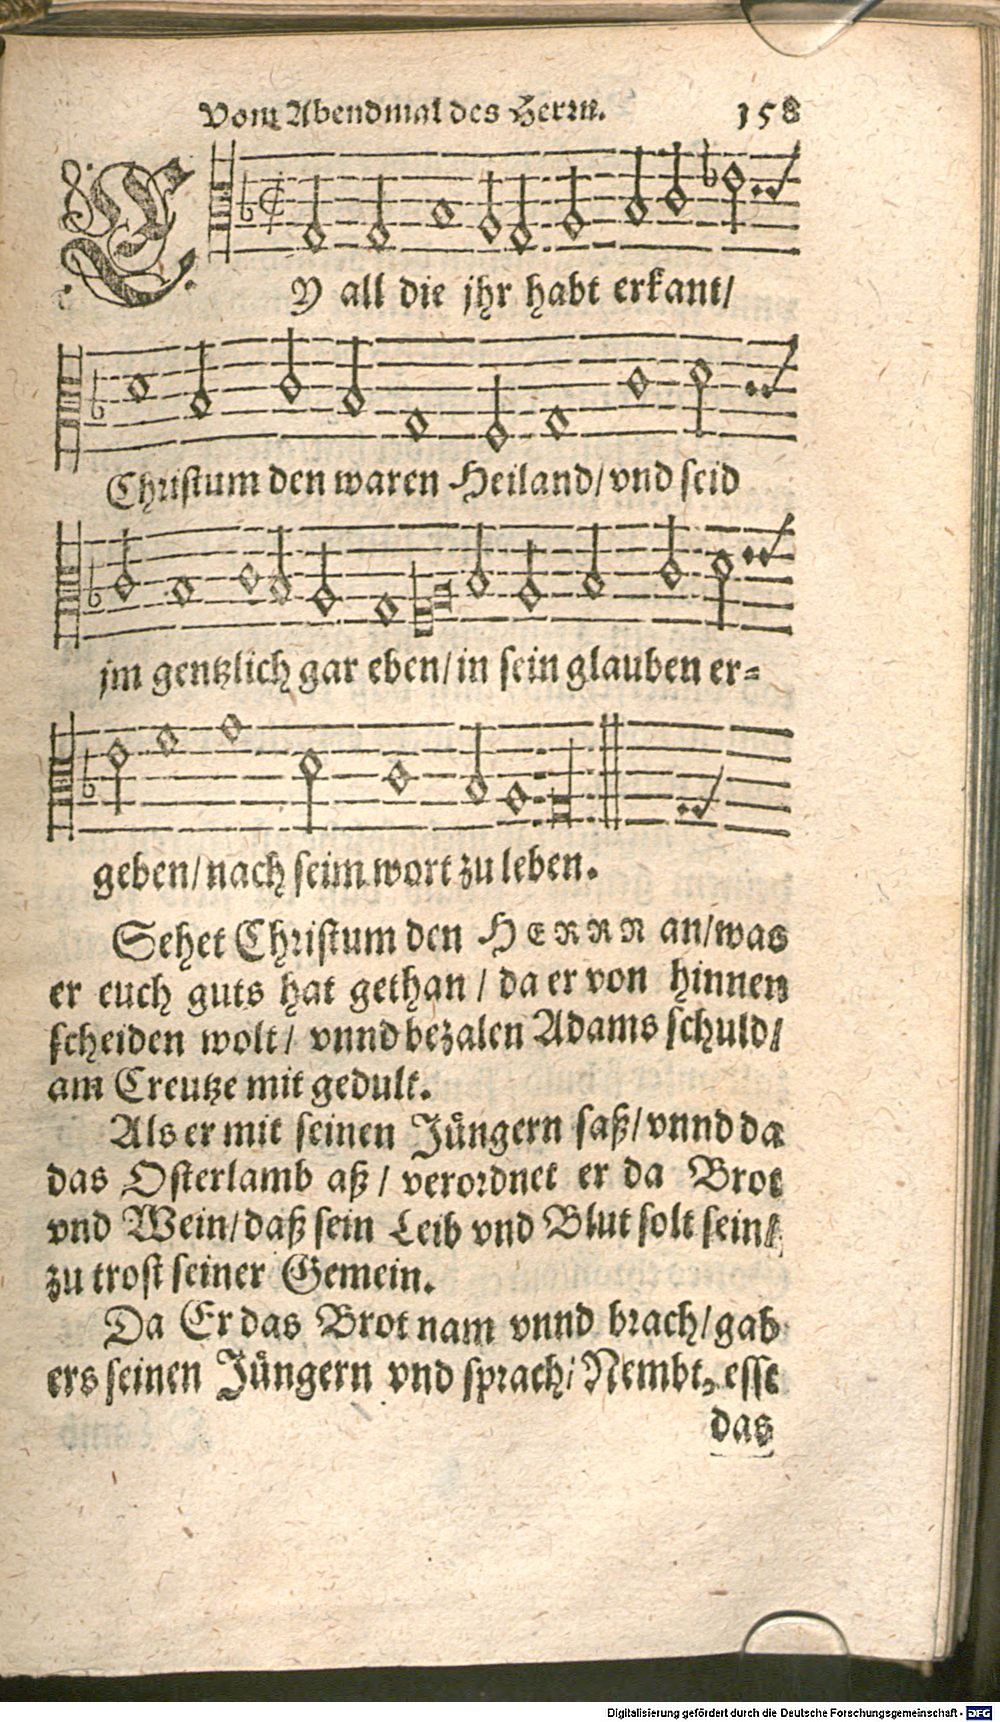 Vom Abendmal des Herrn. 158
EY all die jhr habt erkant/
Christum den waren Heiland/ vnd seid
jm gentzlich gar eben/ in sein glauben er-
geben/ nach seim wort zu leben.
Sehet Christum den HERRN an/ was
er euch guts hat gethan / da er von hinnen
scheiden wolt / vnnd bezalen Adams schuld/
am Creutze mit gedult.
Als er mit seinen Jüngern saß/ vnnd da
das Osterlamb aß / verordnet er da Brot
vnd Wein/ daß sein Leib vnd Blut solt sein/
zu trost seiner Gemein.
Da Er das Brot nam vnnd brach/ gab
ers seinen Jüngern vnd sprach/ Nembt, esst
das
Digitalisierung gefördert durch die Deutsche Forschungsgemeinschaft - DFG